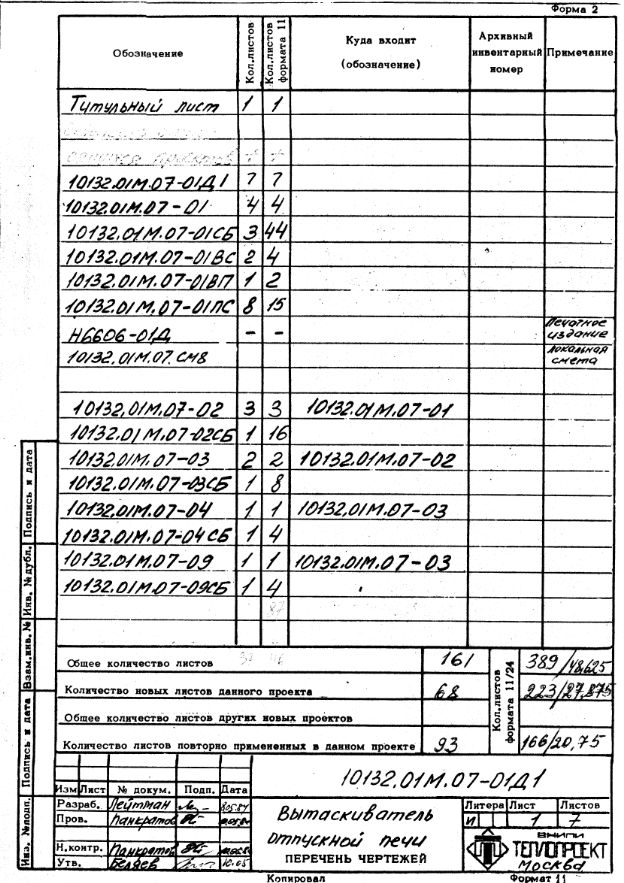 Форма 2
Обозначение Кол.листов Кол.листов формата 11 Куда входит (обозначение) Архивный инвентарный номер Примечание
Титульный лист 1 1
10132.01М.07-01Д1 7 7
10132.01М.07-01 4 4
10132.01М.07-01СБ 3 44
10132.01М.07-01ВС 2 4
10132.01М.07-01ВП 1 2
10132.01М.07-01ПС 8 15
Н6606-01Д - - Печатное издание
10132.01М.07.СМ8 Локальная смета
10132.01М.07-02 3 3 10132.01М.07-01
10132.01М.07-02СБ 1 16
10132.01М.07-03 2 2 10132.01М.07-02
10132.01М.07-03СБ 1 8
10132.01М.07-04 1 1 10132.01М.07-03
10132.01М.07-04СБ 1 4
10132.01М.07-09 1 1 10132.01М.07-03
10132.01М.07-09СБ 1 4
Общее количество листов 161 Кол.листов формата 11/24 389/48,625
Количество новых листов данного проекта 68 223/27,875
Общее количество листов других новых проектов
Количество листов повторно примененных в данном проекте 93 166/20,75
Инв. №подл. Подпись и дата Взам.инв. № Инв. №дубл. Подпись и дата
10132.01М.07-01Д1
Изм Лист № докум. Подп. Дата
Разраб. Лейтман
Пров. Панкратов
Н.контр. Панкратов
Утв. Беляев 10.85
Вытаскиватель
отпускной печи
ПЕРЕЧЕНЬ ЧЕРТЕЖЕЙ
Литера Лист Листов
И 1 7
ВНИПИ
ТЕПЛОПРОЕКТ
Москва
Копировал Формат 11